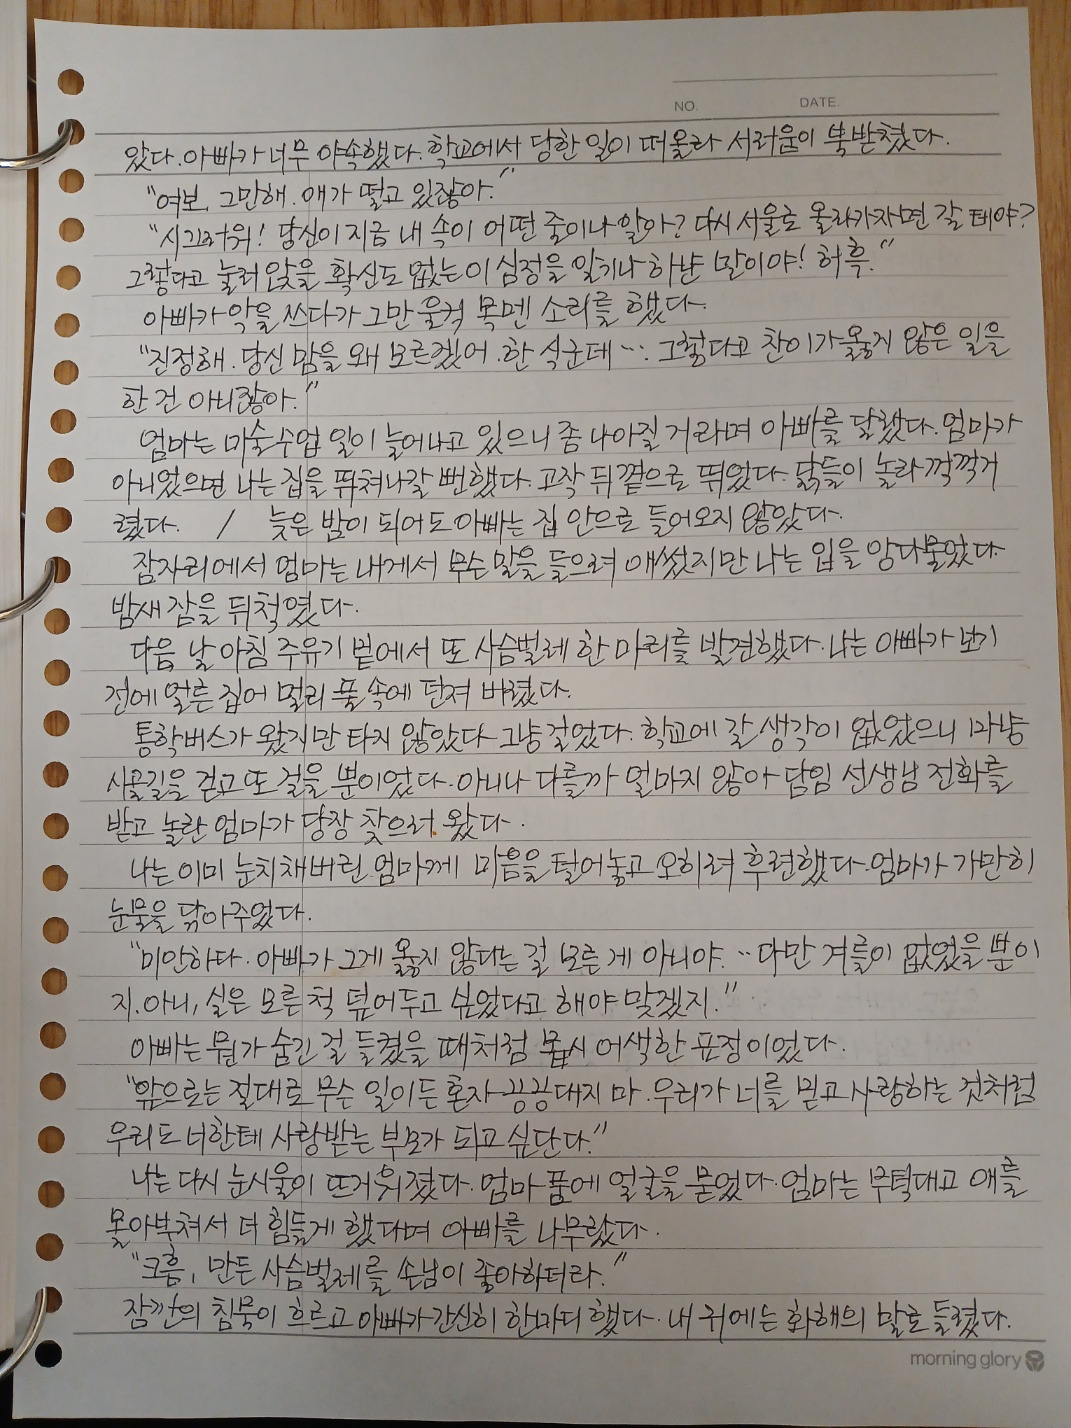 NO. DATE.
았다. 아빠가 너무 야속했다. 학교에서 당한 일이 떠올라 서러움이 북받쳤다.
"여보, 그만해. 애가 떨고 있잖아."
"시끄러워! 당신이 지금 내 속이 어떤 줄이나 알아? 다시 서울로 올라가자면 갈 테야?
그렇다고 눌러 앉을 확신도 없는 이 심정을 알기나 하냔 말이야! 허흑."
아빠가 악을 쓰다가 그만 울컥 목멘 소리를 했다.
"진정해. 당신 맘을 왜 모르겠어. 한 식군데…. 그렇다고 찬이가 옳지 않은 일을
한 건 아니잖아."
엄마는 미술수업 일이 늘어나고 있으니 좀 나아질 거라며 아빠를 달랬다. 엄마가
아니었으면 나는 집을 뛰쳐나갈 뻔했다. 고작 뒤꼍으로 뛰었다. 닭들이 놀라 꺽꺽거
렸다. / 늦은 밤이 되어도 아빠는 집 안으로 들어오지 않았다.
잠자리에서 엄마는 내게서 무슨 말을 들으려 애썼지만 나는 입을 앙다물았다
밤새 잠을 뒤척였다.
다음 날 아침 주유기 밑에서 또 사슴벌레 한 마리를 발견했다. 나는 아빠가 보기
전에 얼른 집어 멀리 풀 속에 던져 버렸다.
통학버스가 왔지만 타지 않았다. 그냥 걸었다. 학교에 갈 생각이 없었으니 마냥
시골길을 걷고 또 걸을 뿐이었다. 아니나 다를까 얼마지 않아 담임 선생님 전화를
받고 놀란 엄마가 당장 찾으러 왔다.
나는 이미 눈치채버린 엄마께 마음을 털어놓고 오히려 후련했다. 엄마가 가만히
눈물을 닦아주었다.
"미안하다. 아빠가 그게 옳지 않다는 걸 모른 게 아니야. …다만 겨를이 없었을 뿐이
지. 아니, 실은 모른 척 덮어두고 싶었다고 해야 맞겠지."
아빠는 뭔가 숨긴 걸 들켰을 때처럼 몹시 어색한 표정이었다.
"앞으로는 절대로 무슨 일이든 혼자 끙끙대지 마. 우리가 너를 믿고 사랑하는 것처럼
우리도 너한테 사랑받는 부모가 되고 싶단다."
나는 다시 눈시울이 뜨거워졌다. 엄마 품에 얼굴을 묻었다. 엄마는 무턱대고 애를
몰아부쳐서 더 힘들게 했다며 아빠를 나무랐다.
"크흠, 만든 사슴벌레를 손님이 좋아하더라."
잠깐의 침묵이 흐르고 아빠가 간신히 한마디 했다. 내 귀에는 화해의 말로 들렸다.
morning glory